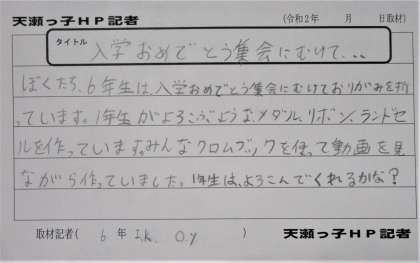 天瀬っ子HP記者 (令和2年 月 日取材)
タイトル
入学おめでとう集会にむけて、、、
ぼくたち、6年生は、入学おめでとう集会にむけておりがみを折
っています。1年生がよろこぶような、メダル、リボン、ランドセ
ルを作っています。みんなクロムブックを使って動画を見
ながら作っていました。1年生は、よろこんでくれるかな?
取材記者( 6 年 I.k. O.y ) 天瀬っ子HP記者